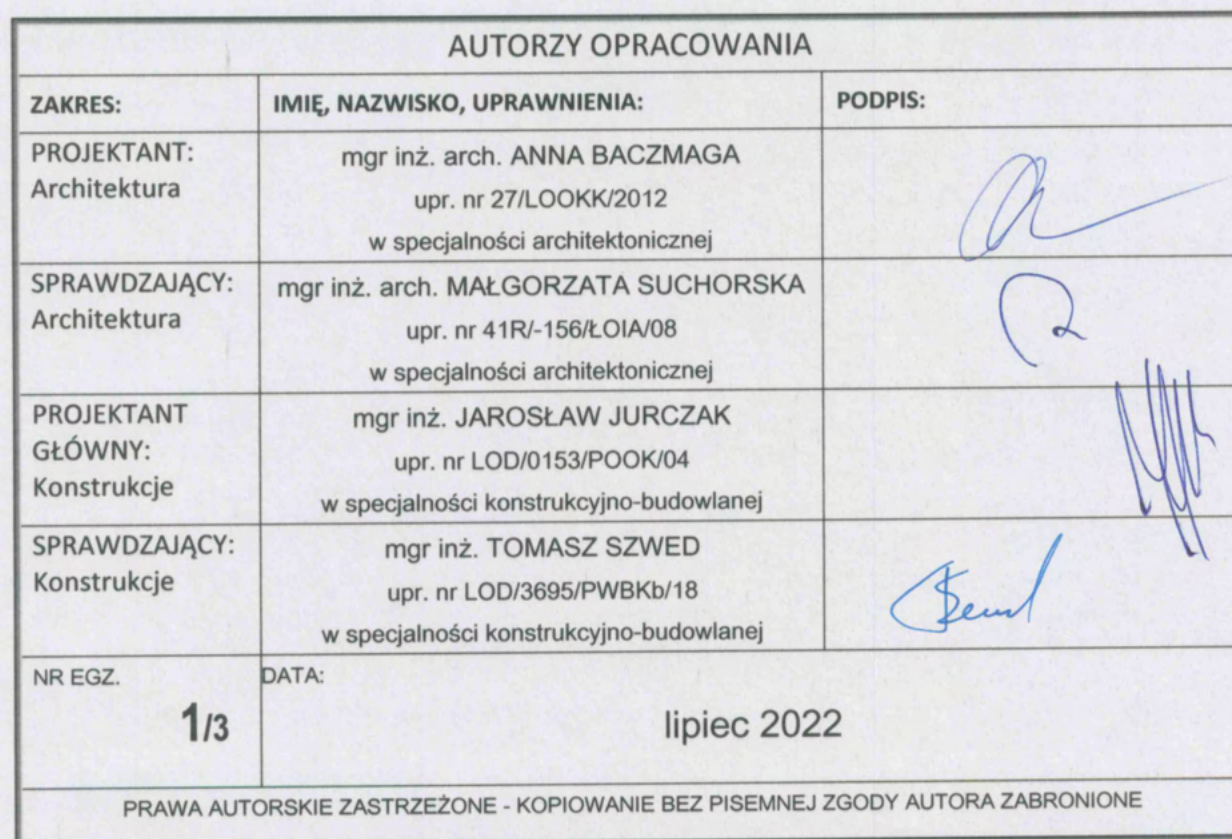 AUTORZY OPRACOWANIA
ZAKRES: IMIĘ, NAZWISKO, UPRAWNIENIA: PODPIS:
PROJEKTANT:
Architektura
mgr inż. arch. ANNA BACZMAGA
upr. nr 27/LOOKK/2012
w specjalności architektonicznej
SPRAWDZAJĄCY:
Architektura
mgr inż. arch. MAŁGORZATA SUCHORSKA
upr. nr 41R/-156/ŁOIA/08
w specjalności architektonicznej
PROJEKTANT
GŁÓWNY:
Konstrukcje
mgr inż. JAROSŁAW JURCZAK
upr. nr LOD/0153/POOK/04
w specjalności konstrukcyjno-budowlanej
SPRAWDZAJĄCY:
Konstrukcje
mgr inż. TOMASZ SZWED
upr. nr LOD/3695/PWBKb/18
w specjalności konstrukcyjno-budowlanej
NR EGZ.
1/3
DATA:
lipiec 2022
PRAWA AUTORSKIE ZASTRZEŻONE - KOPIOWANIE BEZ PISEMNEJ ZGODY AUTORA ZABRONIONE